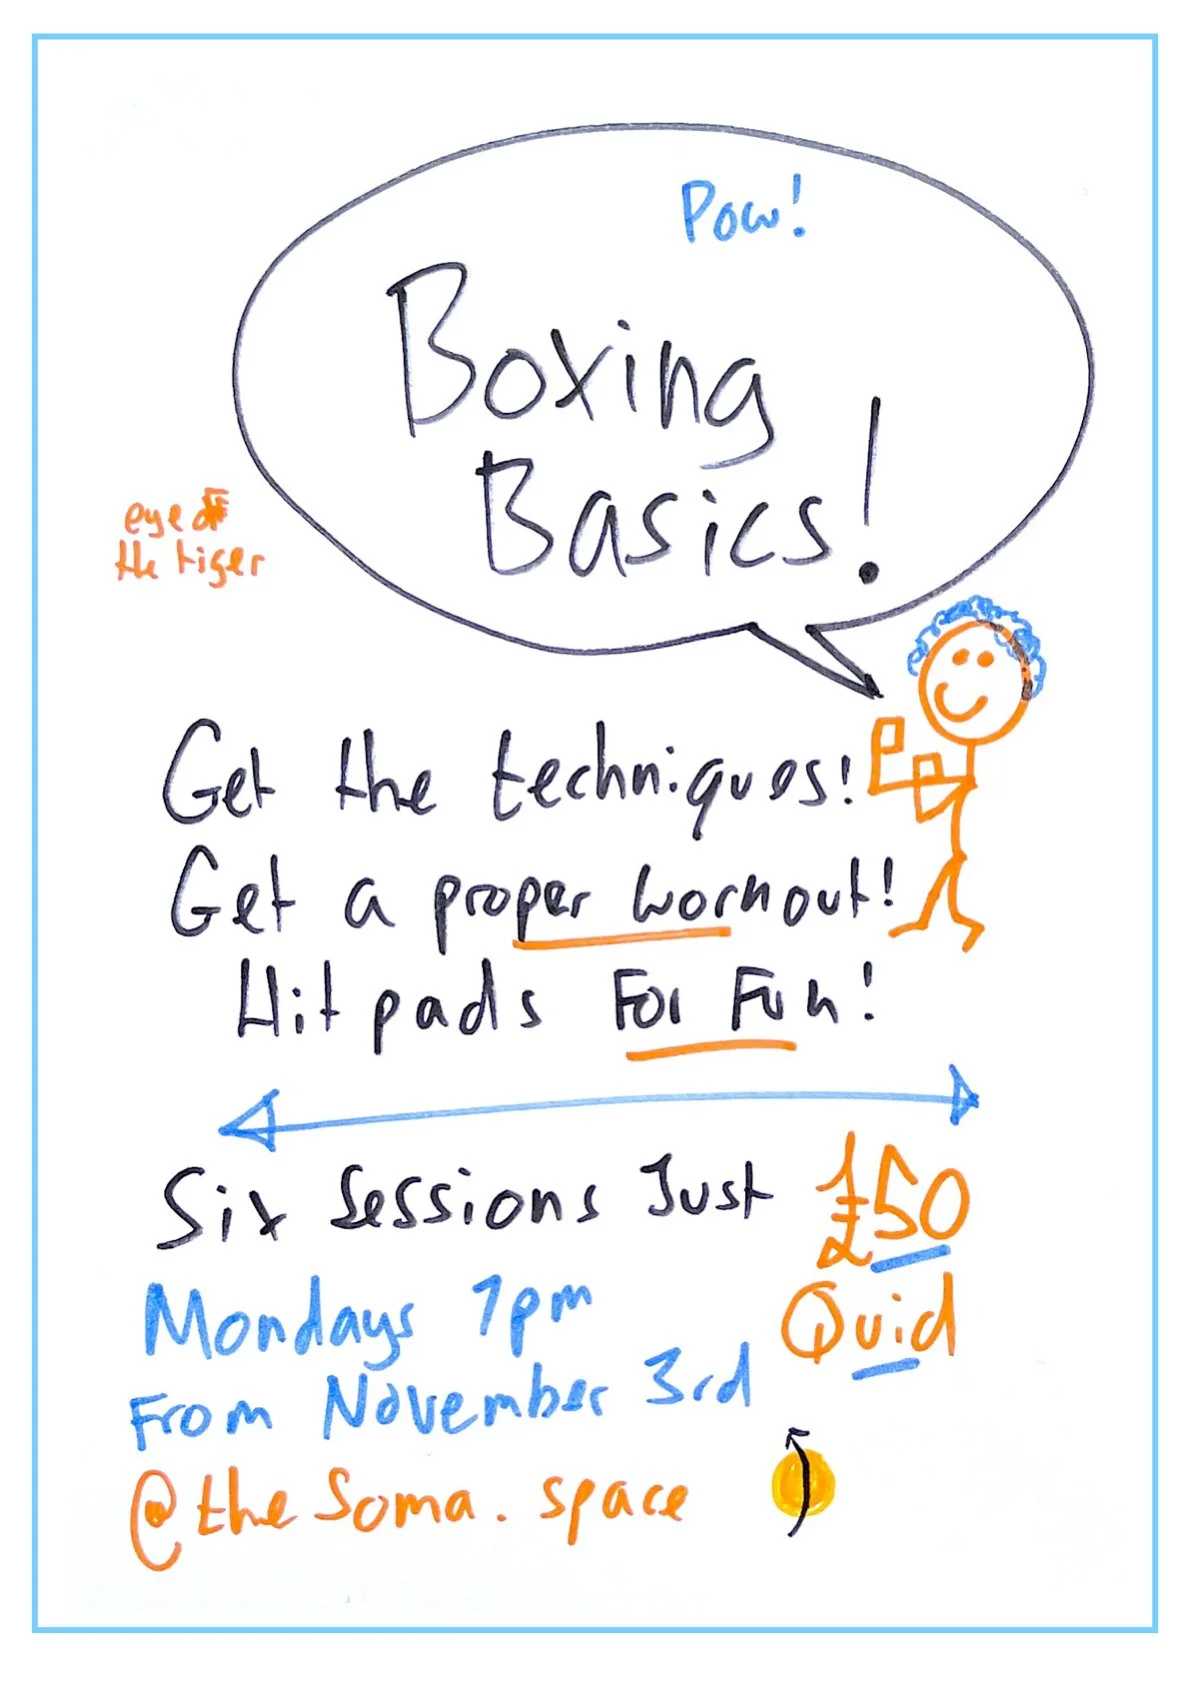 Pow!
Boxing
Basics!
eye of
the tiger
Get the techniques!
Get a proper workout!
Hit pads For Fun!
Six Sessions Just £50
Quid
Mondays 7pm
From November 3rd
@the Soma. space